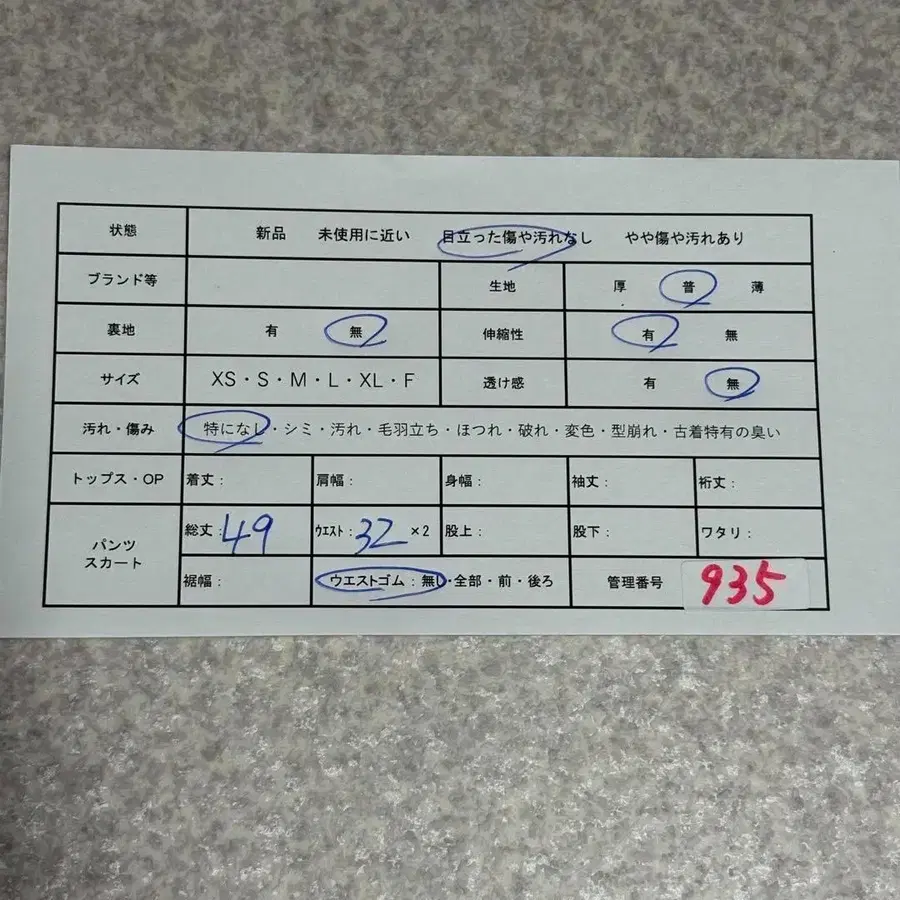 状態 新品 未使用に近い 目立った傷や汚れなし やや傷や汚れあり
ブランド等 生地 厚 普 薄
裏地 有 無 伸縮性 有 無
サイズ XS・S・M・L・XL・F 透け感 有 無
汚れ・傷み 特になし・シミ・汚れ・毛羽立ち・ほつれ・破れ・変色・型崩れ・古着特有の臭い
トップス・OP 着丈: 肩幅: 身幅: 袖丈: 裄丈:
パンツ スカート 総丈:49 ウエスト:32×2 股上: 股下: ワタリ:
裾幅: ウエストゴム:無し・全部・前・後ろ 管理番号 935